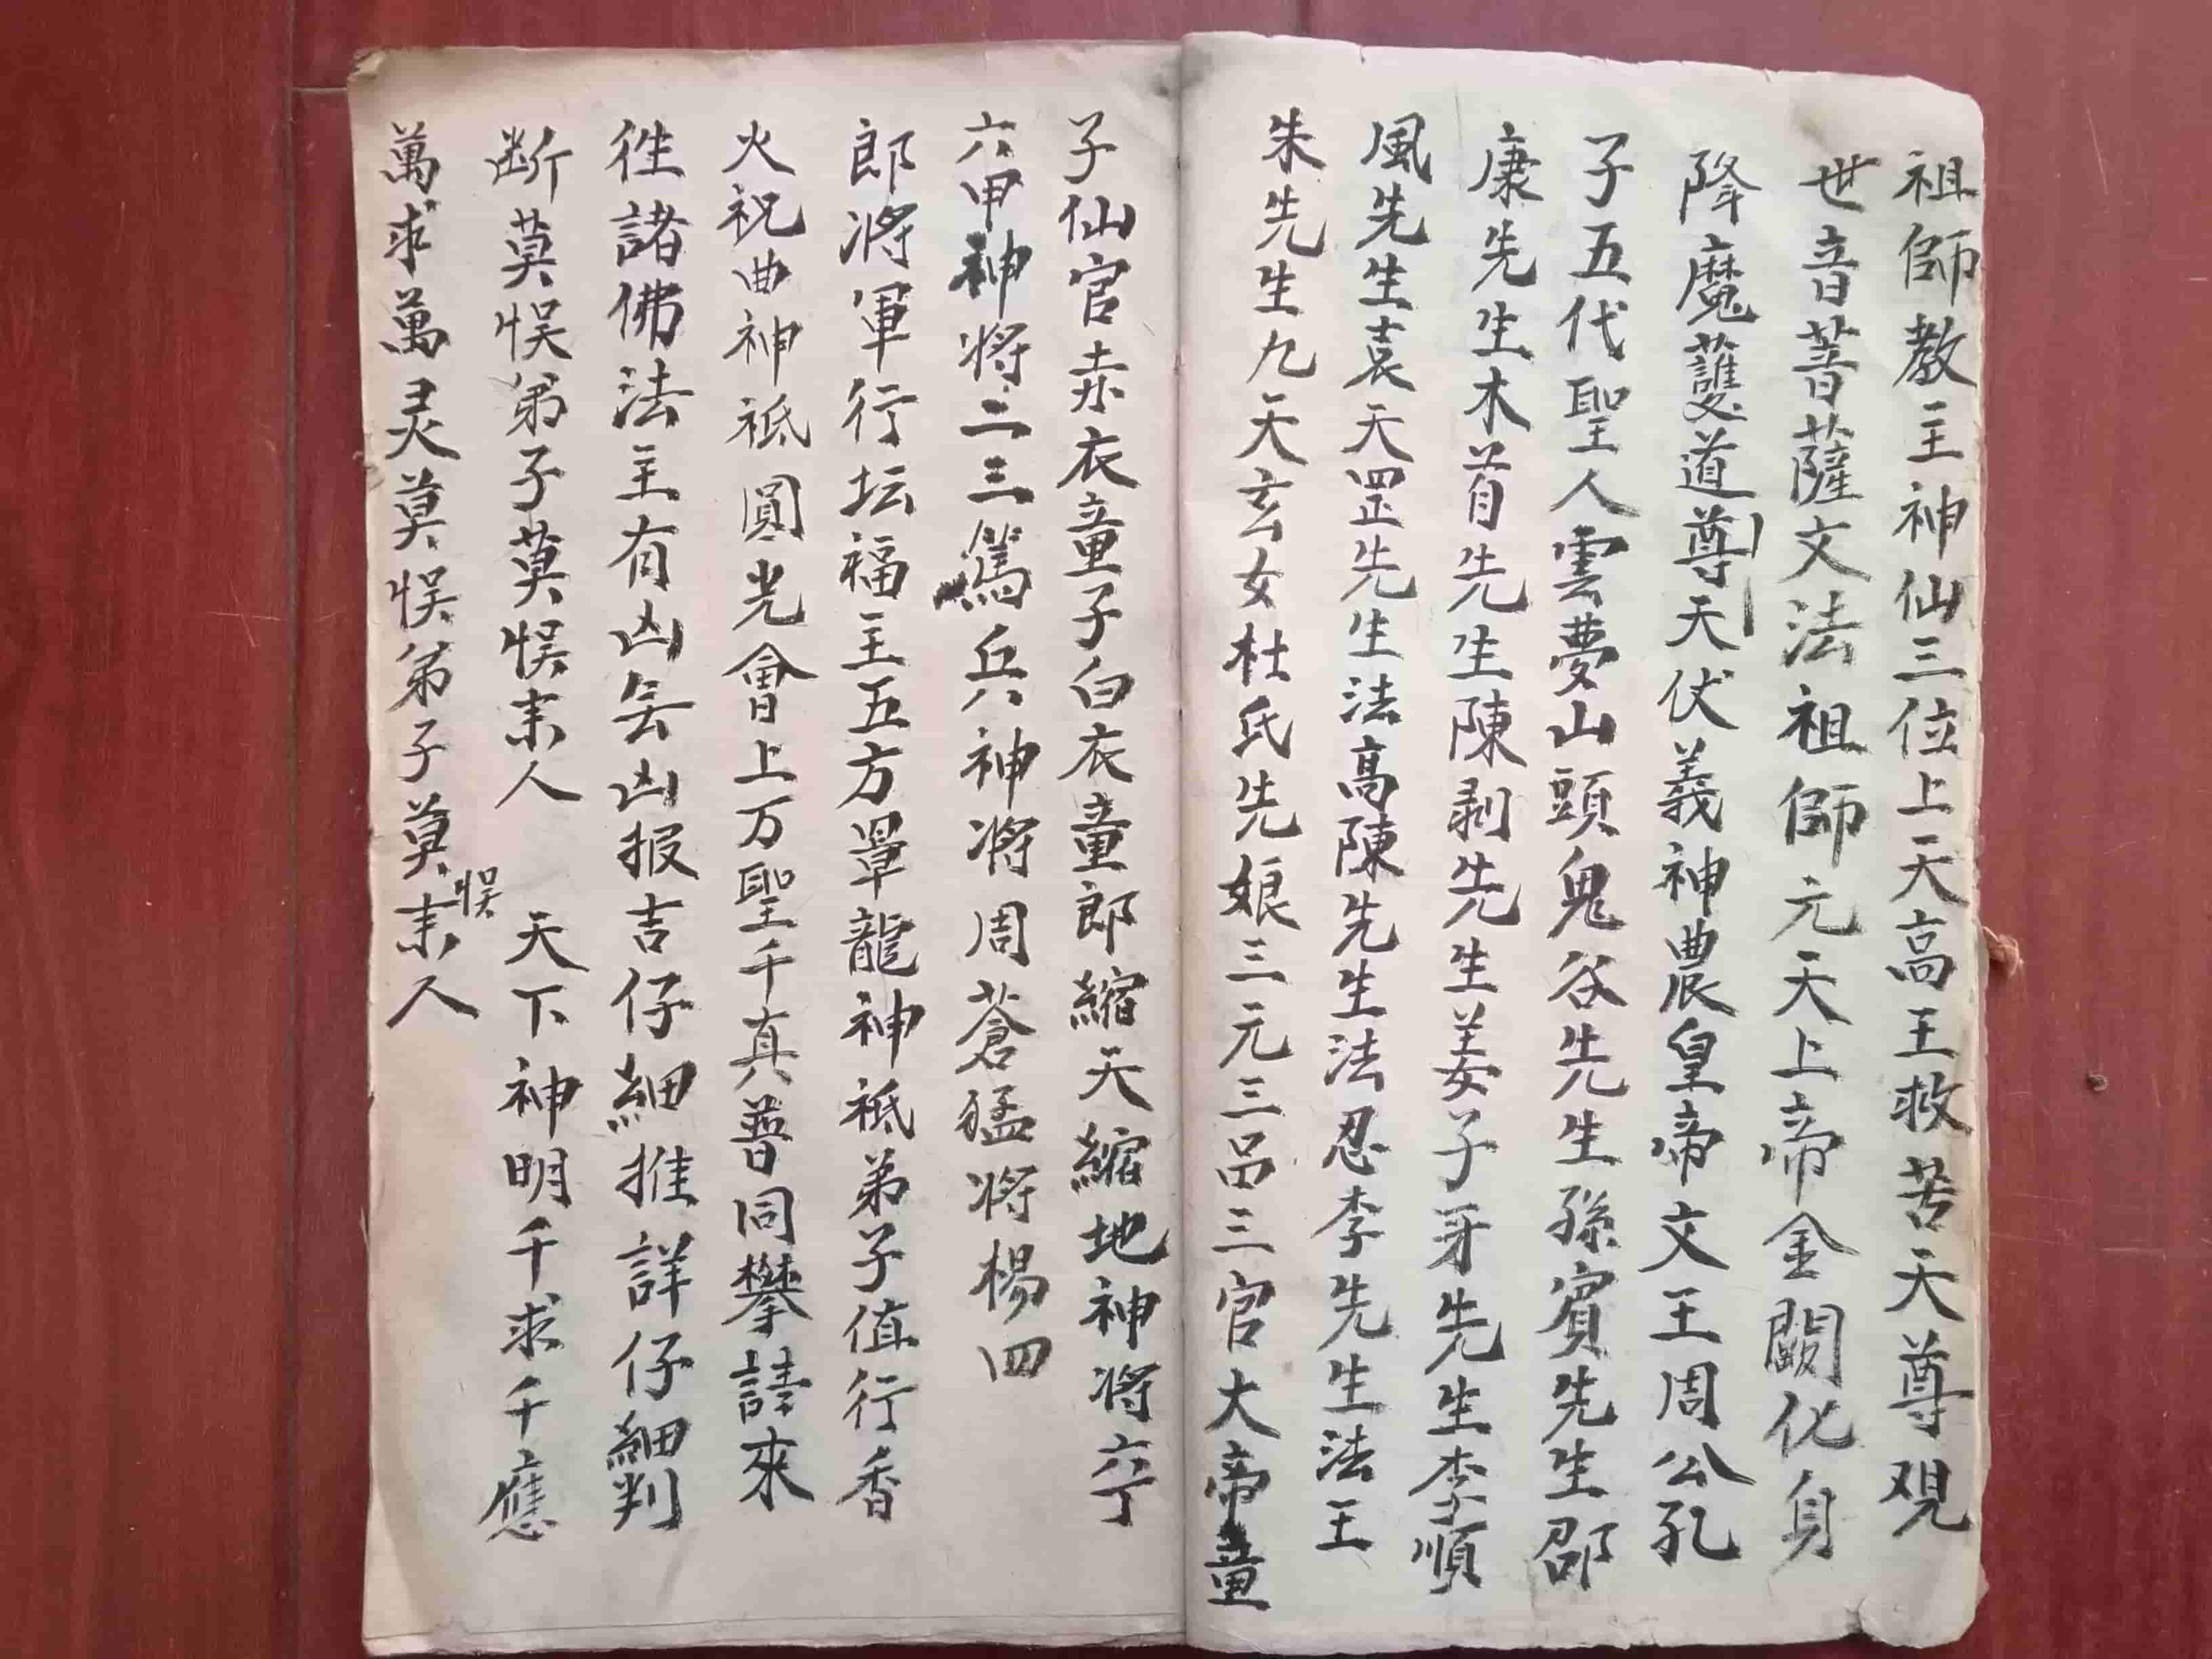 祖師教主神仙三位上天高王救苦天尊观
世音菩薩文法祖師元天上帝金闕化身
降魔護道尊天伏義神農皇帝文王周公孔
子五代聖人雲夢山頭鬼谷先生孫賓先生邵
康先生木首先生陳剥先生姜子牙先生李順
風先生袁天罡先生法高陳先生法忍李先生法王
朱先生九天玄女杜氏先娘三元三品三官大帝童
子仙官赤衣童子白衣童郎縮天縮地神将六丁
六甲神将二三篤兵神将周蒼猛将楊四
郎將軍行坛福主五方罩龍神祗弟子值行香
火祝曲神祗圓光會上万聖千真普同攀請來
徃諸佛法主有凶无凶报吉仔細推詳仔細判
断莫悞弟子莫悞来人 天下神明千求千應
萬求萬灵莫悞弟子莫悞来人